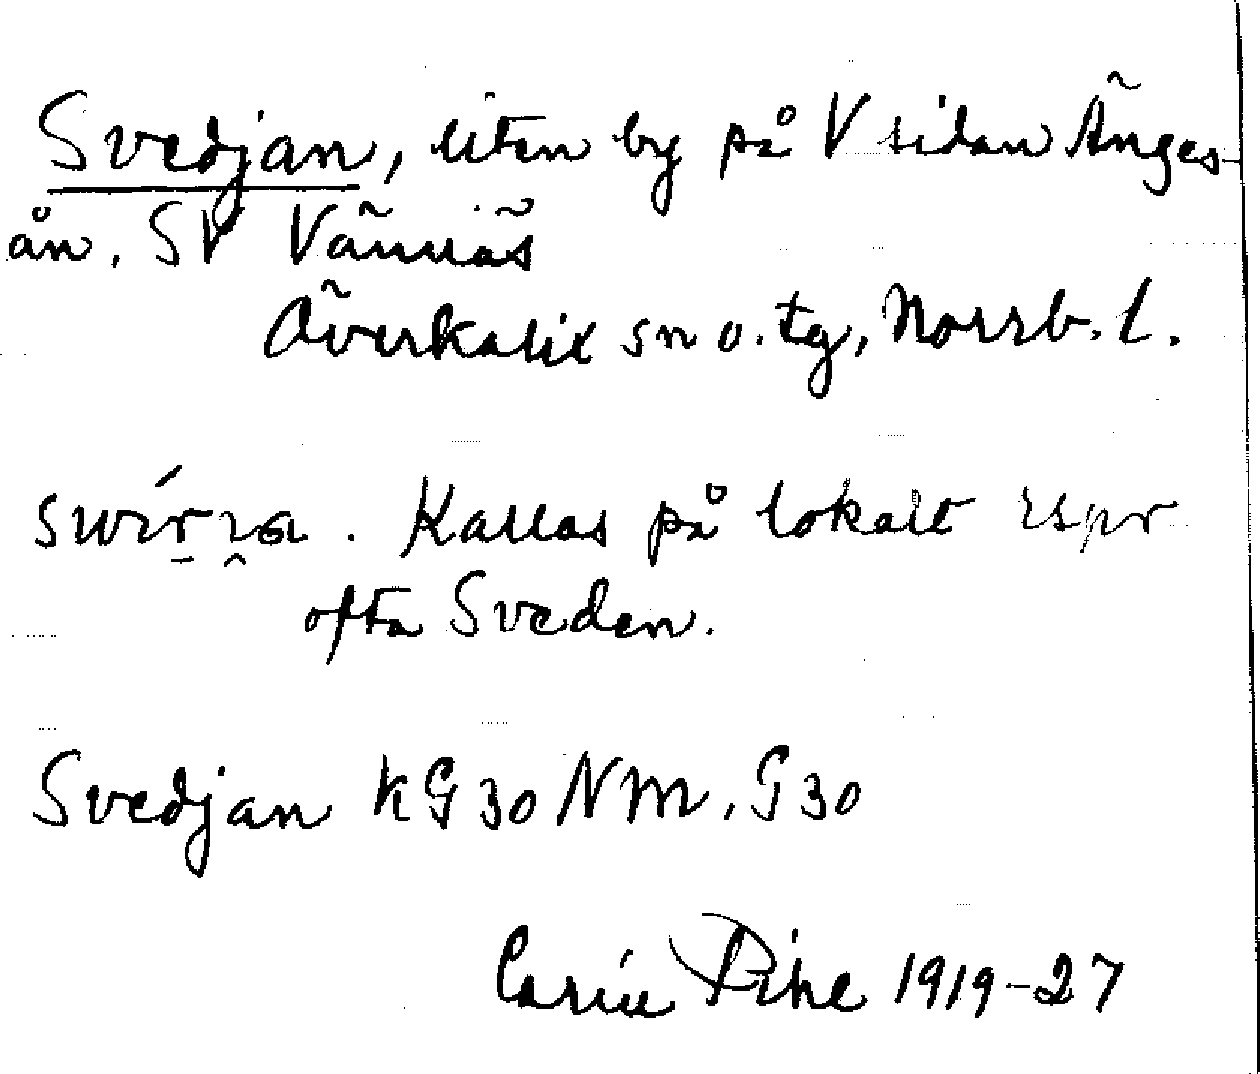 Svedjan, liten by på V sidan Änges-
ån, SV Vännäs
Överkalix sn o. tg, Norrb. l.
Kallas på lokalt rspr
ofta Sveden.
Svedjan KG 30 NM, G 30
Carin Pihl 1919-27